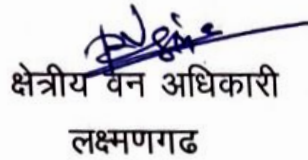 क्षेत्रीय वन अधिकारी
लक्ष्मणगढ